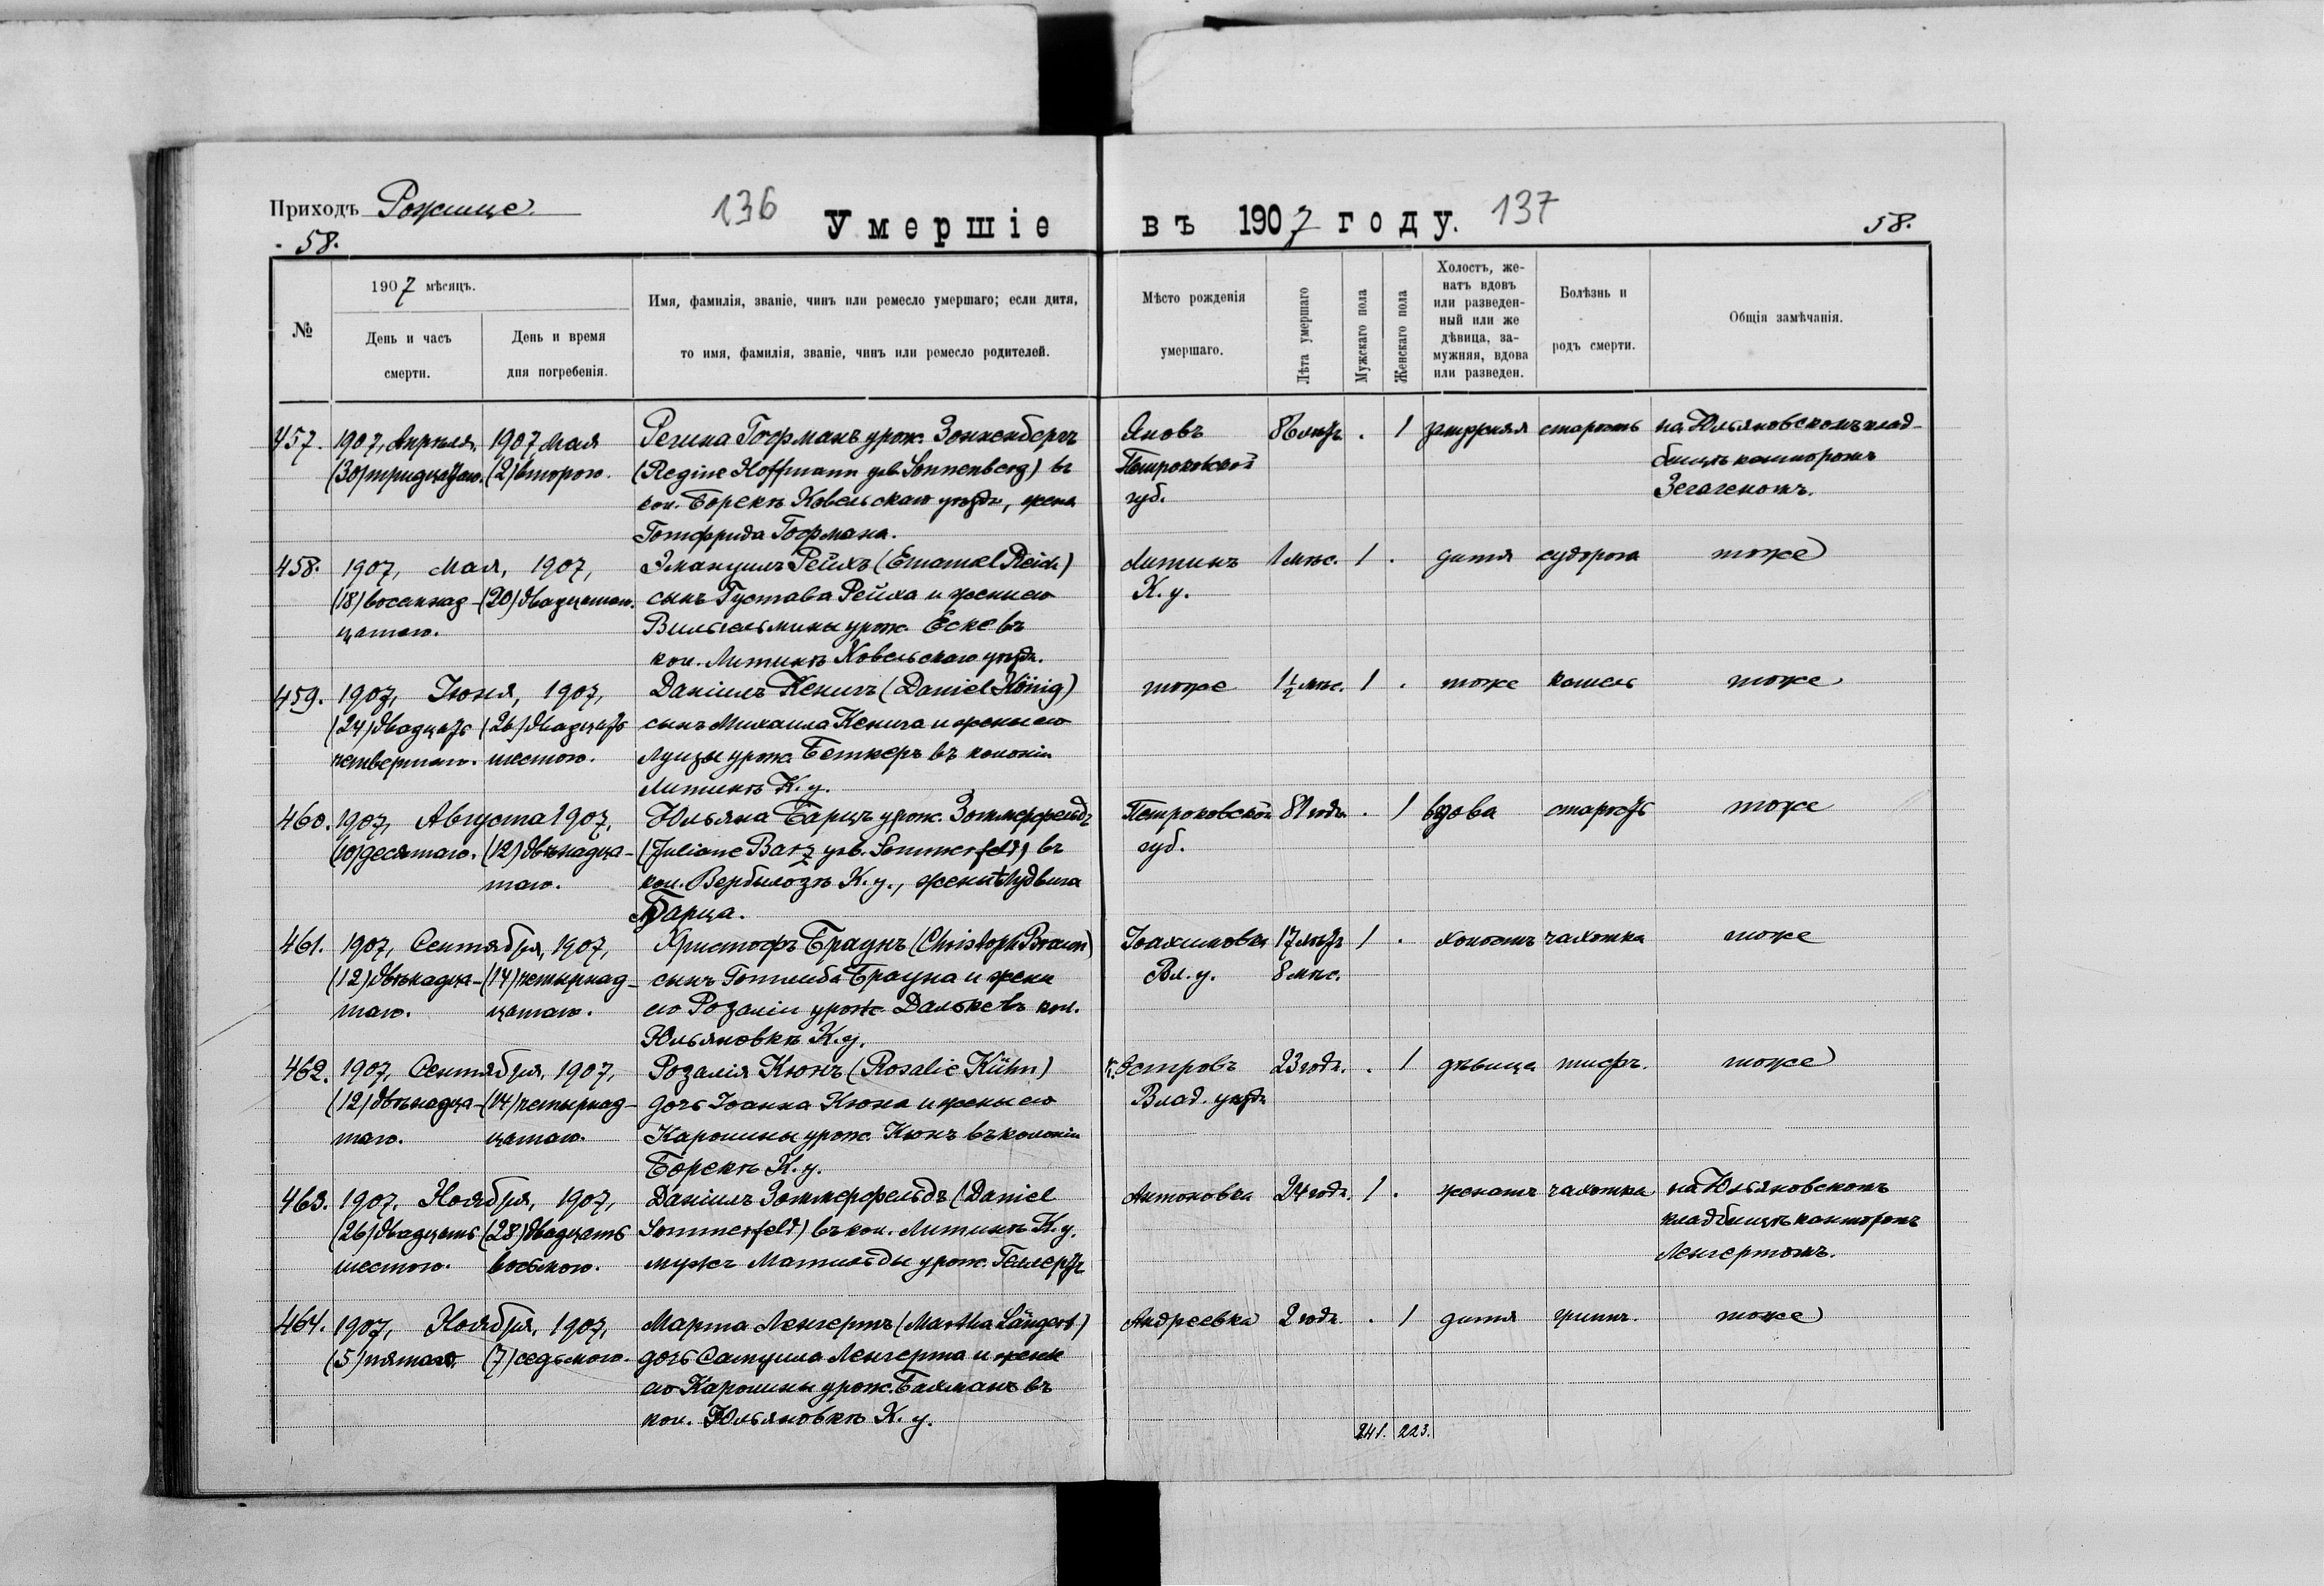 Приходъ Рожище.
136
Умершіе
въ 1907 году.
137
58.
58.
№
1907 мѣсяцъ.
День и часъ смерти.
День и время дня погребенія.
Имя, фамилія, званіе, чинъ или ремесло умершаго; если дитя,
то имя, фамилія, званіе, чинъ или ремесло родителей.
Мѣсто рожденія умершаго.
Лѣта умершаго
Мужскаго пола
Женскаго пола
Холостъ, же-
натъ вдовъ
или разведен-
ный или же
дѣвица, за-
мужняя, вдова
или разведен.
Болѣзнь и родъ смерти.
Общія замѣчанія.
457. 1907, Апрѣля, 1907 Мая Регина Гофманъ урож. Зонненбергъ Яновъ 86 лѣтъ . 1 замужняя старость на Юльяновскомъ клад-
(30) тридцатаго. (2) второго. (Regine Hoffmann geb. Sonnenberg) въ Петроковской бищѣ канторомъ
кол. Борекъ Ковельскаго уѣзда, жена губ. Зегагеномъ.
Готфрида Гофмана.
458. 1907, Мая, 1907, Эмануилъ Рейхъ (Emanuel Reich) Литинъ 1 мѣс. 1 . дитя судорога тоже
(18) восемнад- (20) двадцатаго. сынъ Густава Рейха и жены его К. у.
цатаго. Вильгельмины урож. Еске въ
кол. Литинъ Ковельскаго уѣзда.
459. 1907, Іюня, 1907, Даніилъ Кенигъ (Daniel König) тоже 1½ мѣс. 1 . тоже кашель тоже
(24) двадцать (26) двадцать сынъ Михаила Кенига и жены его
четвертаго. шестого. Луизы урож. Беткеръ въ колоніи
Литинъ К. у.
460. 1907, Августа 1907, Юльяна Барцъ урож. Зоммерфельдъ Петроковской 81 года . 1 вдова старость тоже
(10) десятаго. (12) двѣнадца- (Juliane Barz geb. Sommerfeld) въ губ.
таго. кол. Вербылозъ К. у., жена † Лудвига
Барца.
461. 1907, Сентября, 1907, Христофъ Браунъ (Christoph Braun) Іоахимовка 17 лѣтъ 1 . холостъ чахотка тоже
(12) двѣнадца- (14) четырнад- сынъ Готлиба Брауна и жены Вл. у. 8 мѣс.
таго. цатаго. его Розаліи урож. Дальке въ кол.
Юльяновкѣ К. у.
462. 1907, Сентября, 1907, Розалія Кюнъ (Rosalie Kühn) Островъ 23 года. . 1 дѣвица тифъ. тоже
(12) двѣнадца- (14) четырнад- дочь Іоанна Кюна и жены его Влад. уѣзда
таго. цатаго. Каролины урож. Кюнъ въ колоніи
Борекъ К. у.
463. 1907, Ноября, 1907, Даніилъ Зоммерфельдъ (Daniel Антоновка 24 года. 1 . женатъ чахотка на Юльяновскомъ
(26) двадцать (28) двадцать Sommerfeld) въ кол. Литинъ К. у. кладбищѣ канторомъ
шестого. восьмого. мужъ Матильды урож. Геллертъ Ленгертомъ.
464. 1907, Ноября, 1907, Марта Ленгертъ (Martha Längert) Андреевка 2 года . 1 дитя грипъ. тоже
(5) пятаго. (7) седьмого. дочь Самуила Ленгерта и жены
его Каролины урож. Бахманъ въ
кол. Юльяновкѣ К. у.
241. 223.